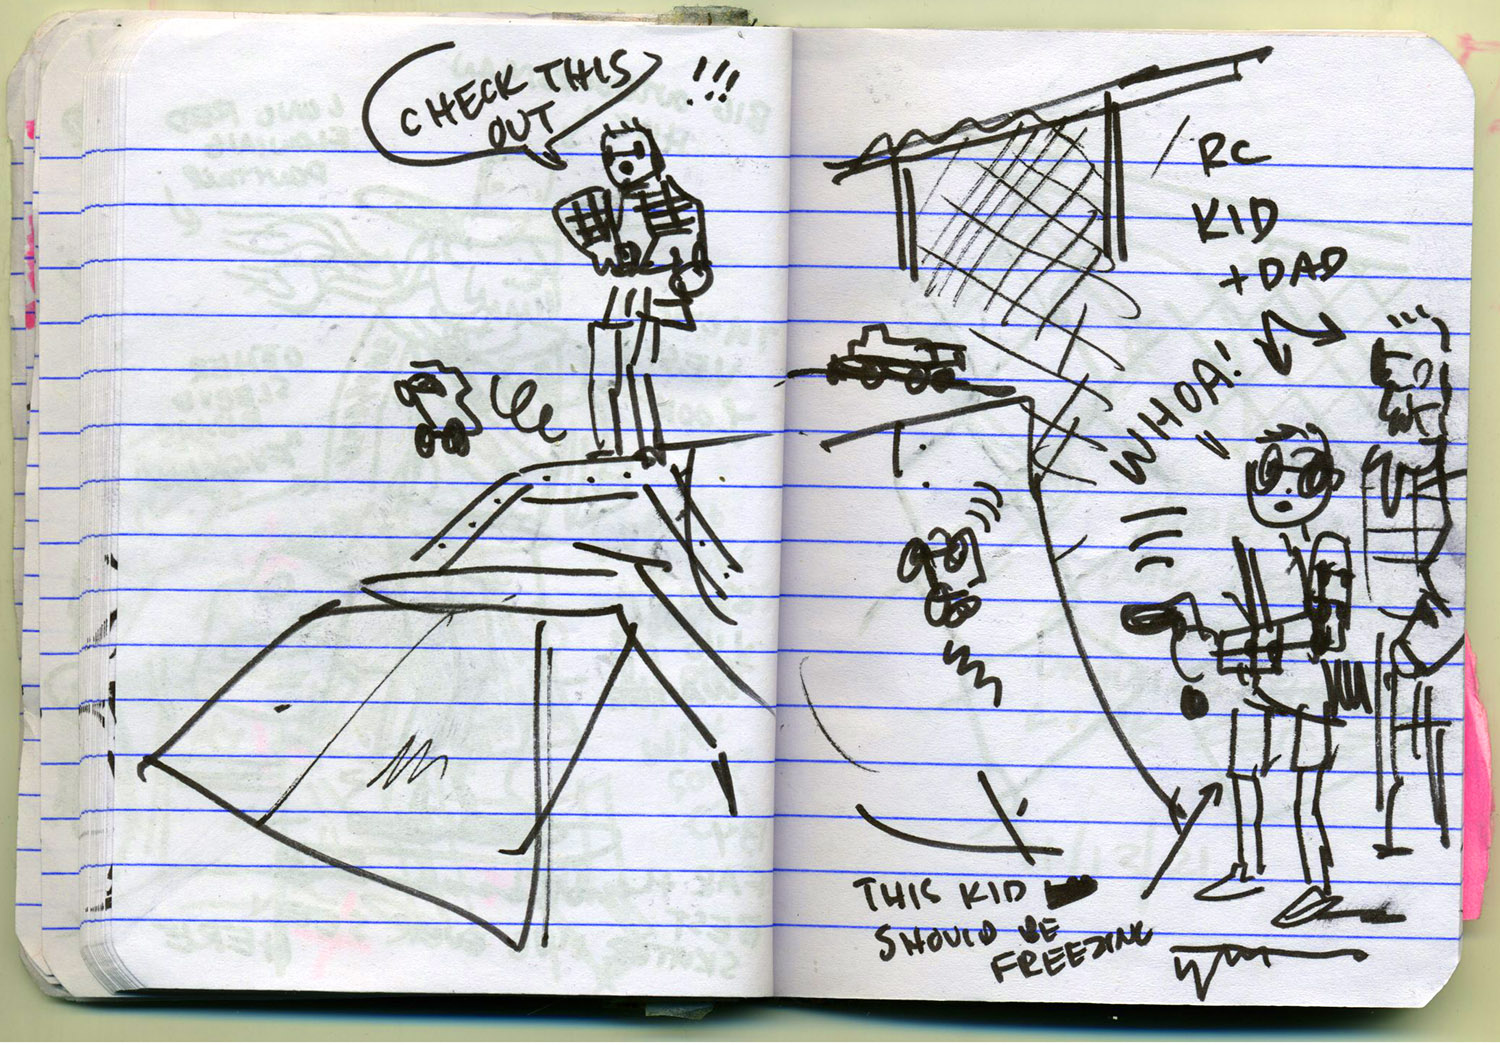 CHECK THIS
OUT
!!!
RC
KID
+ DAD
WHOA!
THIS KID
SHOULD BE
FREEZING